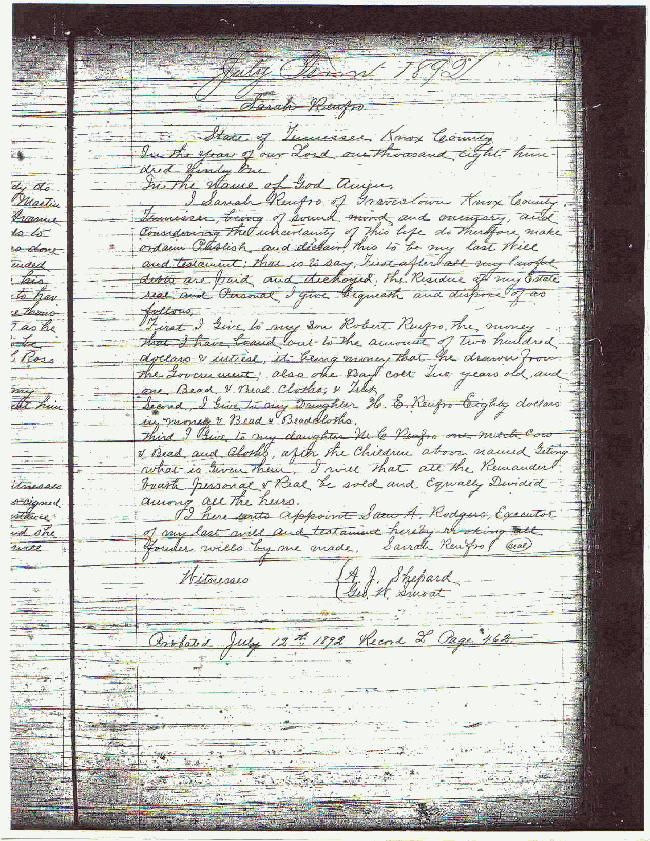 July Term 1892
Sarah Renfro
State of Tennessee Knox County
In the year of our Lord one thousand eight hun-
dred Ninety One
In the Name of God Amen
I Sarrah Renfro of Gravestown Knox County
Tennessee, being of sound mind and memory, and
considering the uncertainty of this life do therefore make
ordain Publish, and declare this to be my last Will
and testament: that is to say, First after all my lawful
debts are paid and discharged, the Residue of my Estate
real and Personal I give bequeath and dispose of as
follows,
First I Give to my Son Robert Renfro, the money
that I have loand out to the amount of two hundred
dollars & intrest, it being money that he drawn from
the Government; also one Bay colt Two years old and
one Bead & Bead Clothes, &
Second, I Give to my Daughter H. E. Renfro Eighty dollars
in money & Bead & Beadcloths.
Third I Give to my daughter M C Renfro one Cow
& Bead and Cloths, after the Children above named Geting
what is Given them. I will that all the Remander
boath personal & Real be sold and Equally Divided
among all the heirs.
I here Appoint Sam A. Rodgers, Executor
of my last will and testament hereby revoking all
former wills by me made. Sarrah Renfro seal
Witnesses
A. J. Shepard
Geo. W. Smoat
Probated July 12th 1892 Record L Page 462
dy do
Martin
is to
done
his
to hav
T as he
Ross
my
him
itnesses
signed
nd she
will